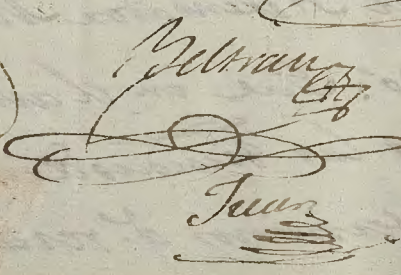 Beltran
Juan